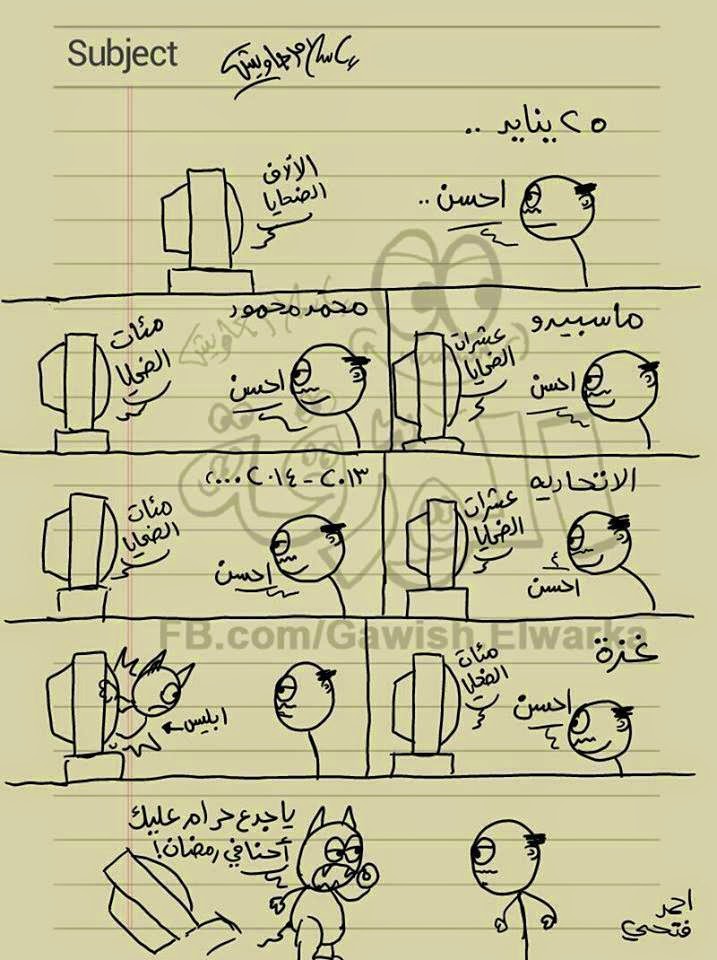 Subject
إسلام جاويش
٢٥ يناير ..
احسن ..
الألاف
الضحايا
ماسبيرو
احسن
عشرات
الضحايا
محمد محمود
احسن
مئات
الضحايا
الاتحاديه
احسن
عشرات
الضحايا
٢٠١٣ - ٢٠١٤ ...
احسن
مئات
الضحايا
غزة
احسن
مئات
الضحايا
ابليس
ياجدع حرام عليك
أحنا في رمضان!
احمد
فتحي
إسلام جاويش
الورقة
FB.com/Gawish.Elwarka